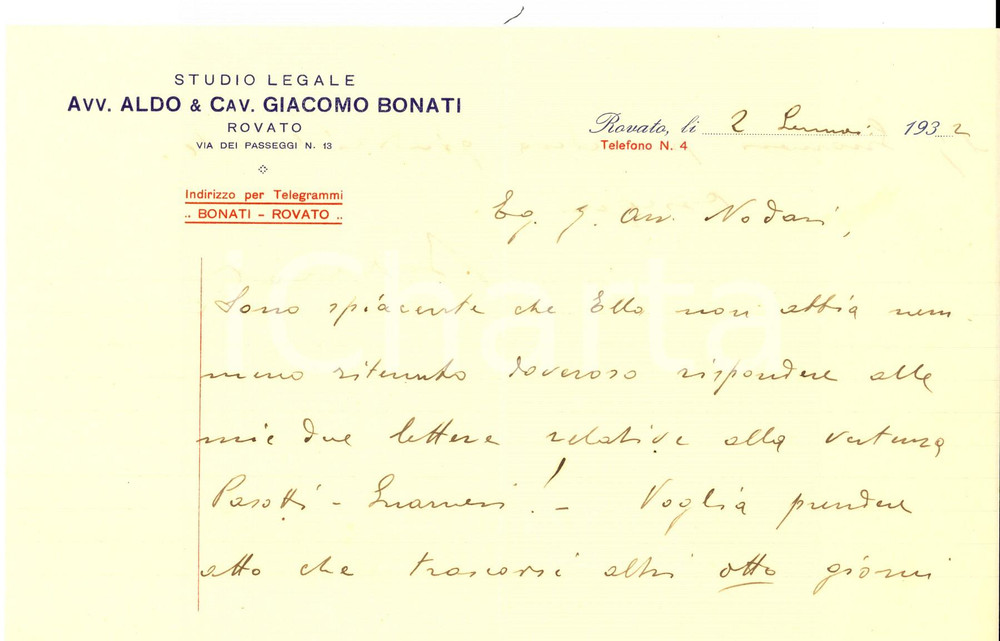 STUDIO LEGALE
AVV. ALDO & CAV. GIACOMO BONATI
ROVATO
VIA DEI PASSEGGI N. 13
Indirizzo per Telegrammi
.. BONATI - ROVATO ..
Rovato, li 2 1932
Telefono N. 4
Eg. S. Avv. Nodari,
Sono spiacente che Ella non abbia nem
meno ritenuto doveroso rispondere alle
mie due lettere relative alla vertenza
Pasotti - Guarneri! - Voglia prendere
atto che trascorsi altri otto giorni
iCharta